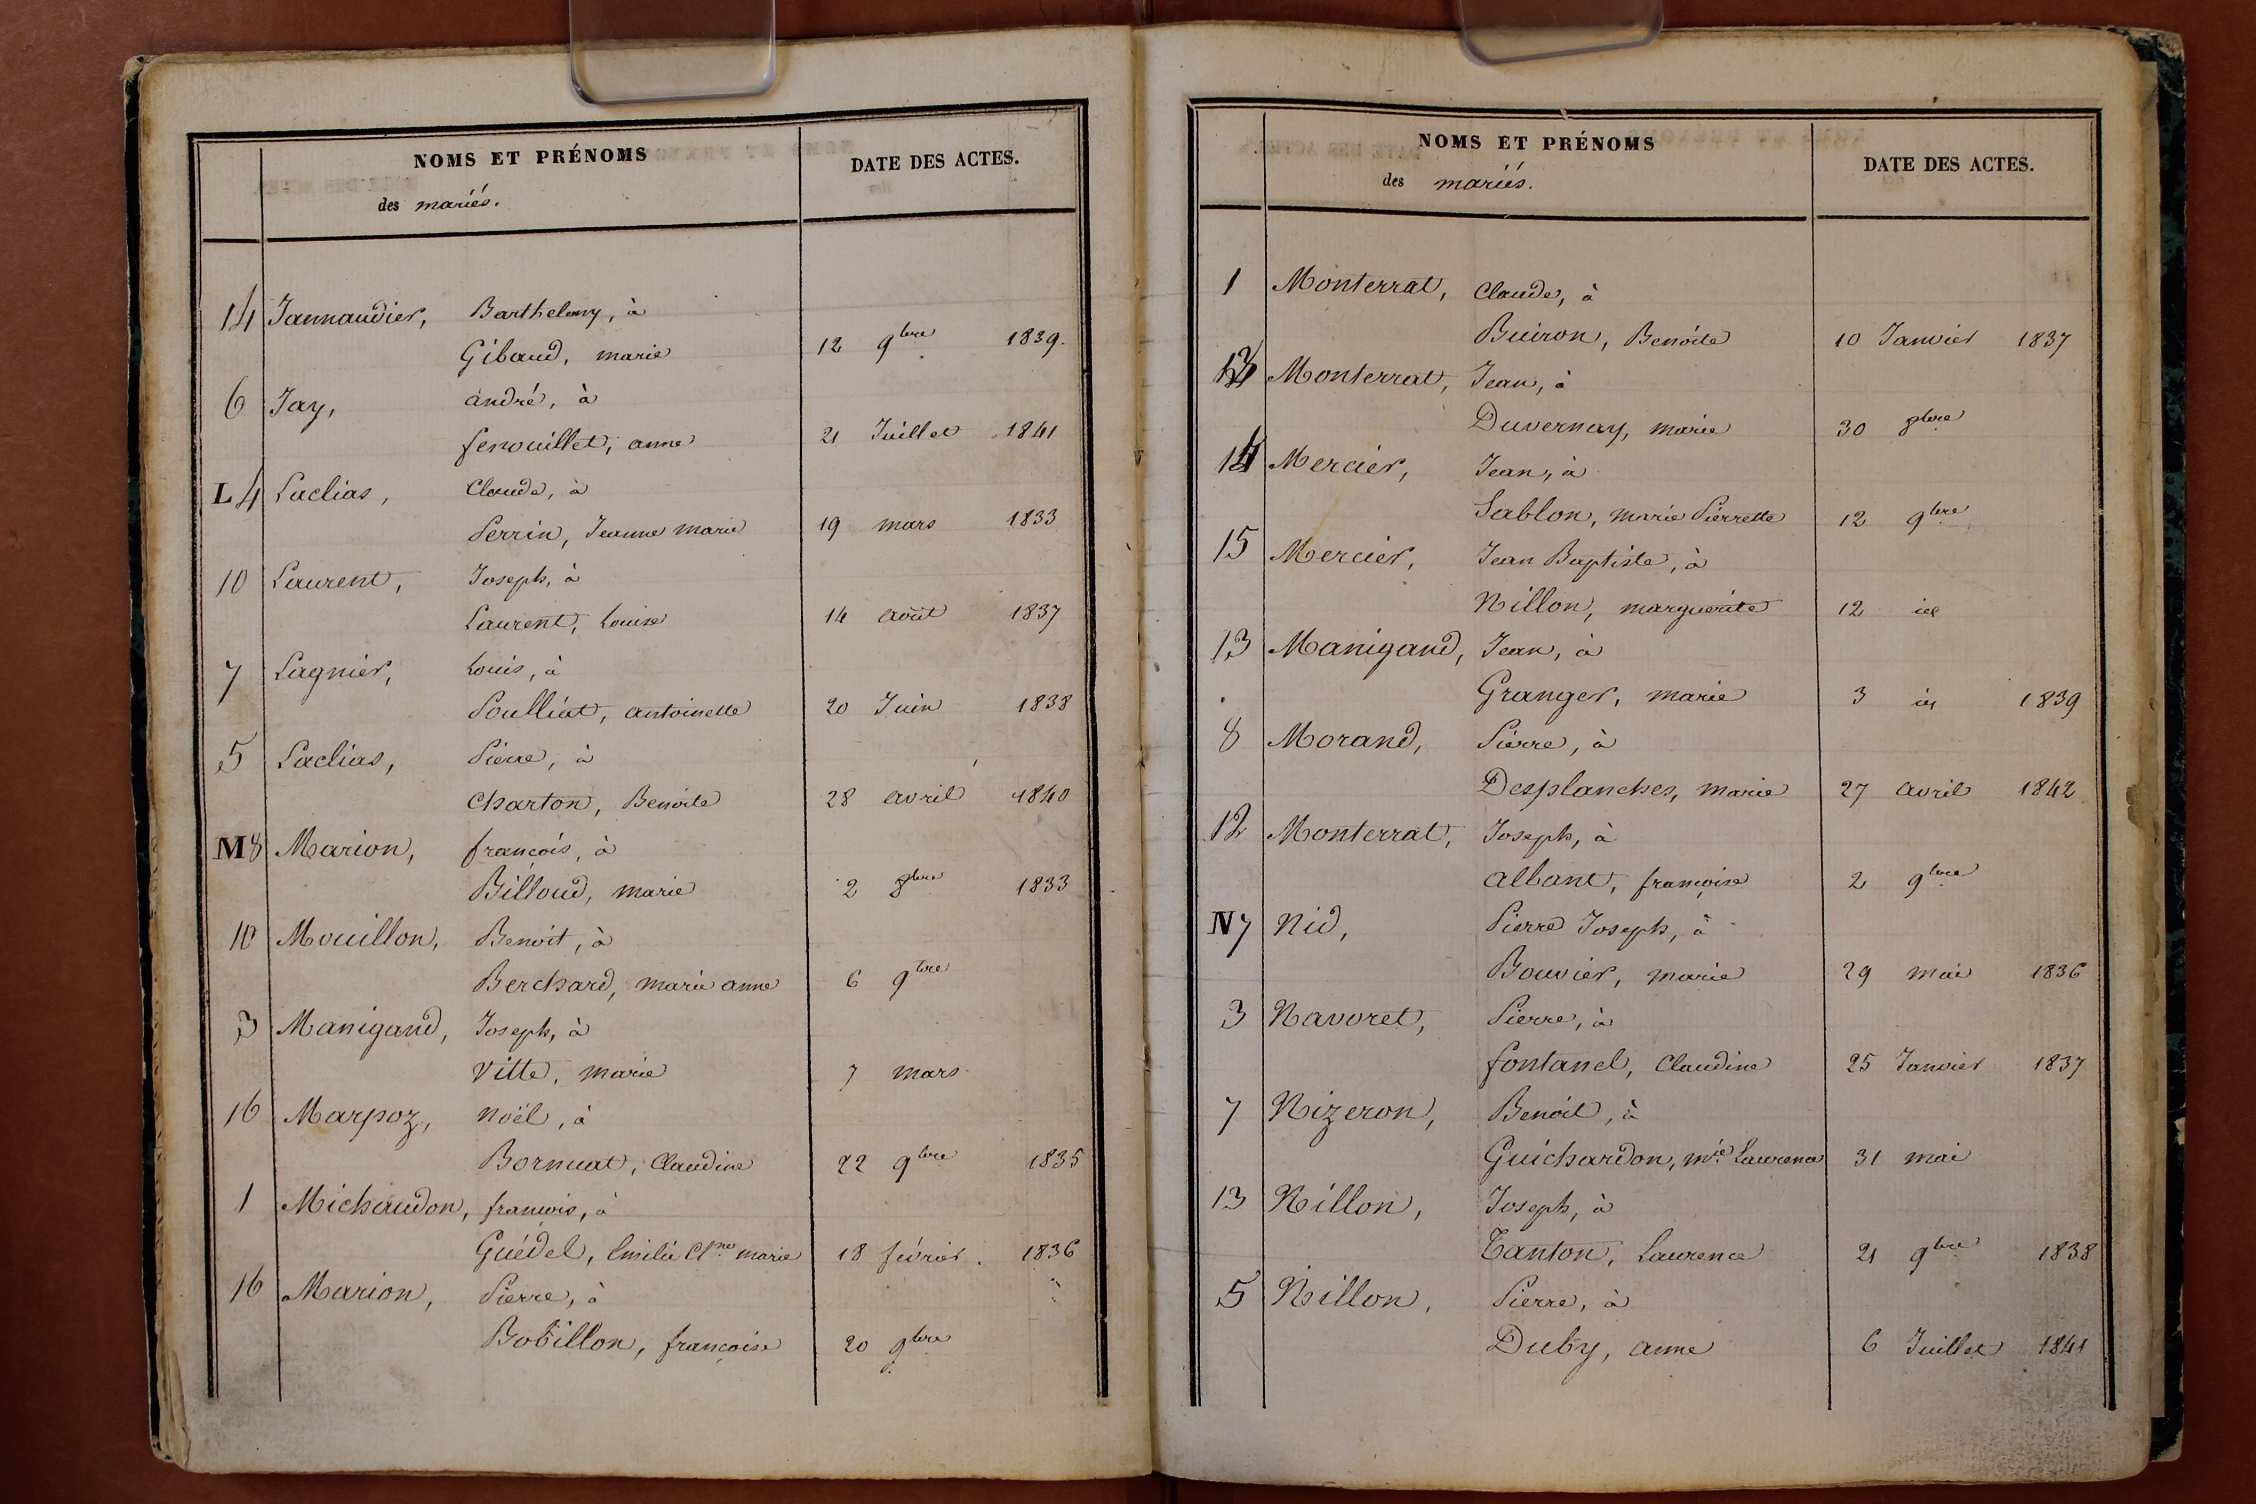 NOMS ET PRÉNOMS
des mariés.
DATE DES ACTES.
14 Jannaudier, Barthelemy, à
Gibaud, marie 12 9bre 1839.
6 Jay, andré, à
fenouillet, anne 21 Juillet 1841
L 4 Laclias, Claude, à
Perrin, Jeanne marie 19 mars 1833
10 Laurent, Joseph, à
Laurent, Louise 14 août 1837
7 Lagnier, Louis, à
Poulliat, antoinette 20 Juin 1838
5 Laclias, Pierre, à
Charton, Benoite 28 avril 1840
M 8 Marion, françois, à
Billoud, marie 2 8bre 1833
10 Mouillon, Benoit, à
Berchard, marie anne 6 9bre
3 Manigand, Joseph, à
Vitte, marie 7 mars
16 Marpoz, Noël, à
Bornuat, Claudine 22 9bre 1835
1 Michaudon, françois, à
Guédel, Emilie marie 18 février 1836
16 Marion, Pierre, à
Bobillon, françoise 20 9bre
NOMS ET PRÉNOMS
des mariés.
DATE DES ACTES.
1 Monterrat, Claude, à
Buiron, Benoite 10 Janvier 1837
Monterrat, Jean, à
Duvernay, marie 30 8bre
14 Mercier, Jean, à
Sablon, marie Pierrette 12 9bre
15 Mercier, Jean Baptiste, à
Nillon, marguerite 12 id
13 Manigand, Jean, à
Granger, marie 3 id 1839
8 Morand, Pierre, à
Desplanches, marie 27 avril 1842
12 Monterrat, Joseph, à
albant, françoise 2 9bre
N 7 Nid, Pierre Joseph, à
Bouvier, marie 29 mai 1836
3 Navoret, Pierre, à
fontanel, Claudine 25 Janvier 1837
7 Nizeron, Benoit, à
Guichardon, mie Laurence 31 mai
13 Nillon, Joseph, à
Tanton, Laurence 21 9bre 1838
5 Nillon, Pierre, à
Duby, anne 6 Juillet 1841